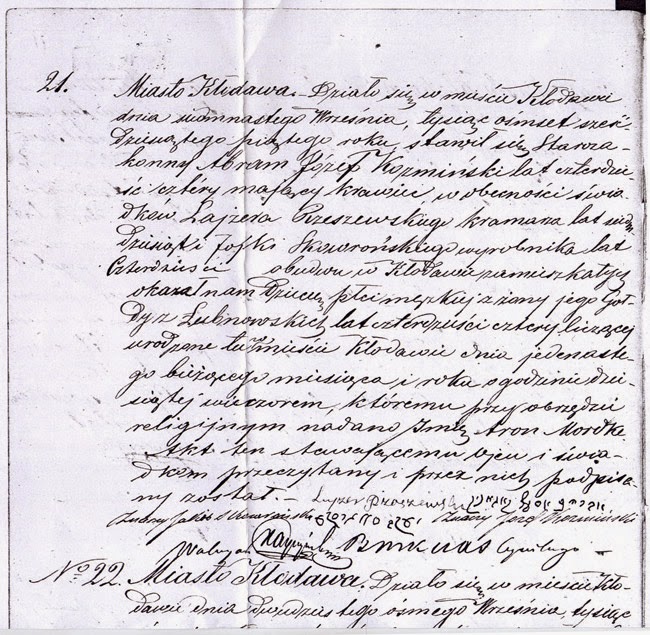 21. Miasto Kłodawa. Działo się w mieście Kłodawie
dnia ósmnastego Września, tysiąc ośmset sześć
dziesiątego piątego roku, stawił się Staroza-
konny Abram Józef Koźmiński lat czterdzie
ści cztéry mający krawiec, w obecności świa
dków Lajzera Przeszewskiego kramarza lat
dziesiąt i Jośki Skowrońskiego wyrobnika lat
Czterdzieści obudwu w Kłodawie zamieszkałych
okazał nam Dziecię płci męzkiej z żony jego Gol
dy z Lubnowskich lat czterdzieści cztery liczącej
urodzone tu w mieście Kłodawie dnia jedenaste
go bieżącego miesiąca i roku o godzinie dzie
siątej wieczorem, któremu przy obrzędzie
religijnym nadano Imię Aron Mordka.
Akt ten stawającemu ojcu i świa
dkom przeczytany i przez nich podpisa
ny został.- Layzer Przeszewski
Józef Koźmiński
Urz Cywilnego
No 22. Miasto Kłodawa. Działo się w mieście Kło
dawie dnia dwudziestego osmego Września, tysiąc